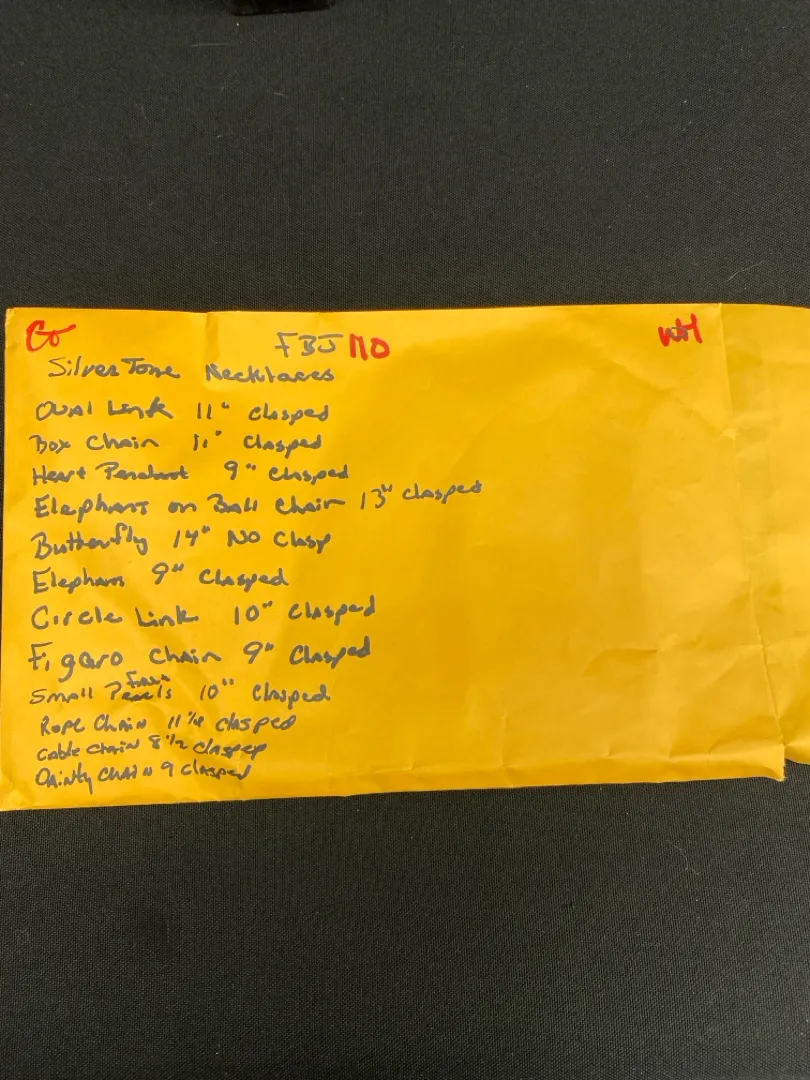 FBJ NO WH
Silver Tone Necklaces
Oval Link 11" Clasped
Box Chain 11" Clasped
Heart Pendant 9" Clasped
Elephant on Ball Chain 13" Clasped
Butterfly 14" No Clasp
Elephant 9" Clasped
Circle Link 10" Clasped
Figaro Chain 9" Clasped
Small Faux Pearls 10" Clasped
Rope Chain 11 1/4 clasped
Cable chain 8 1/2 clasped
Dainty Chain 9 clasped